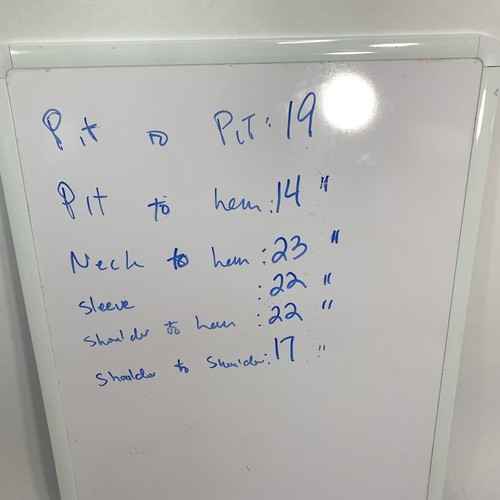 Pit to PIT: 19
PIT to hem: 14 "
Neck to hem: 23 "
Sleeve : 22 "
Shoulder to hem : 22 "
Shoulder to Shoulder: 17 "